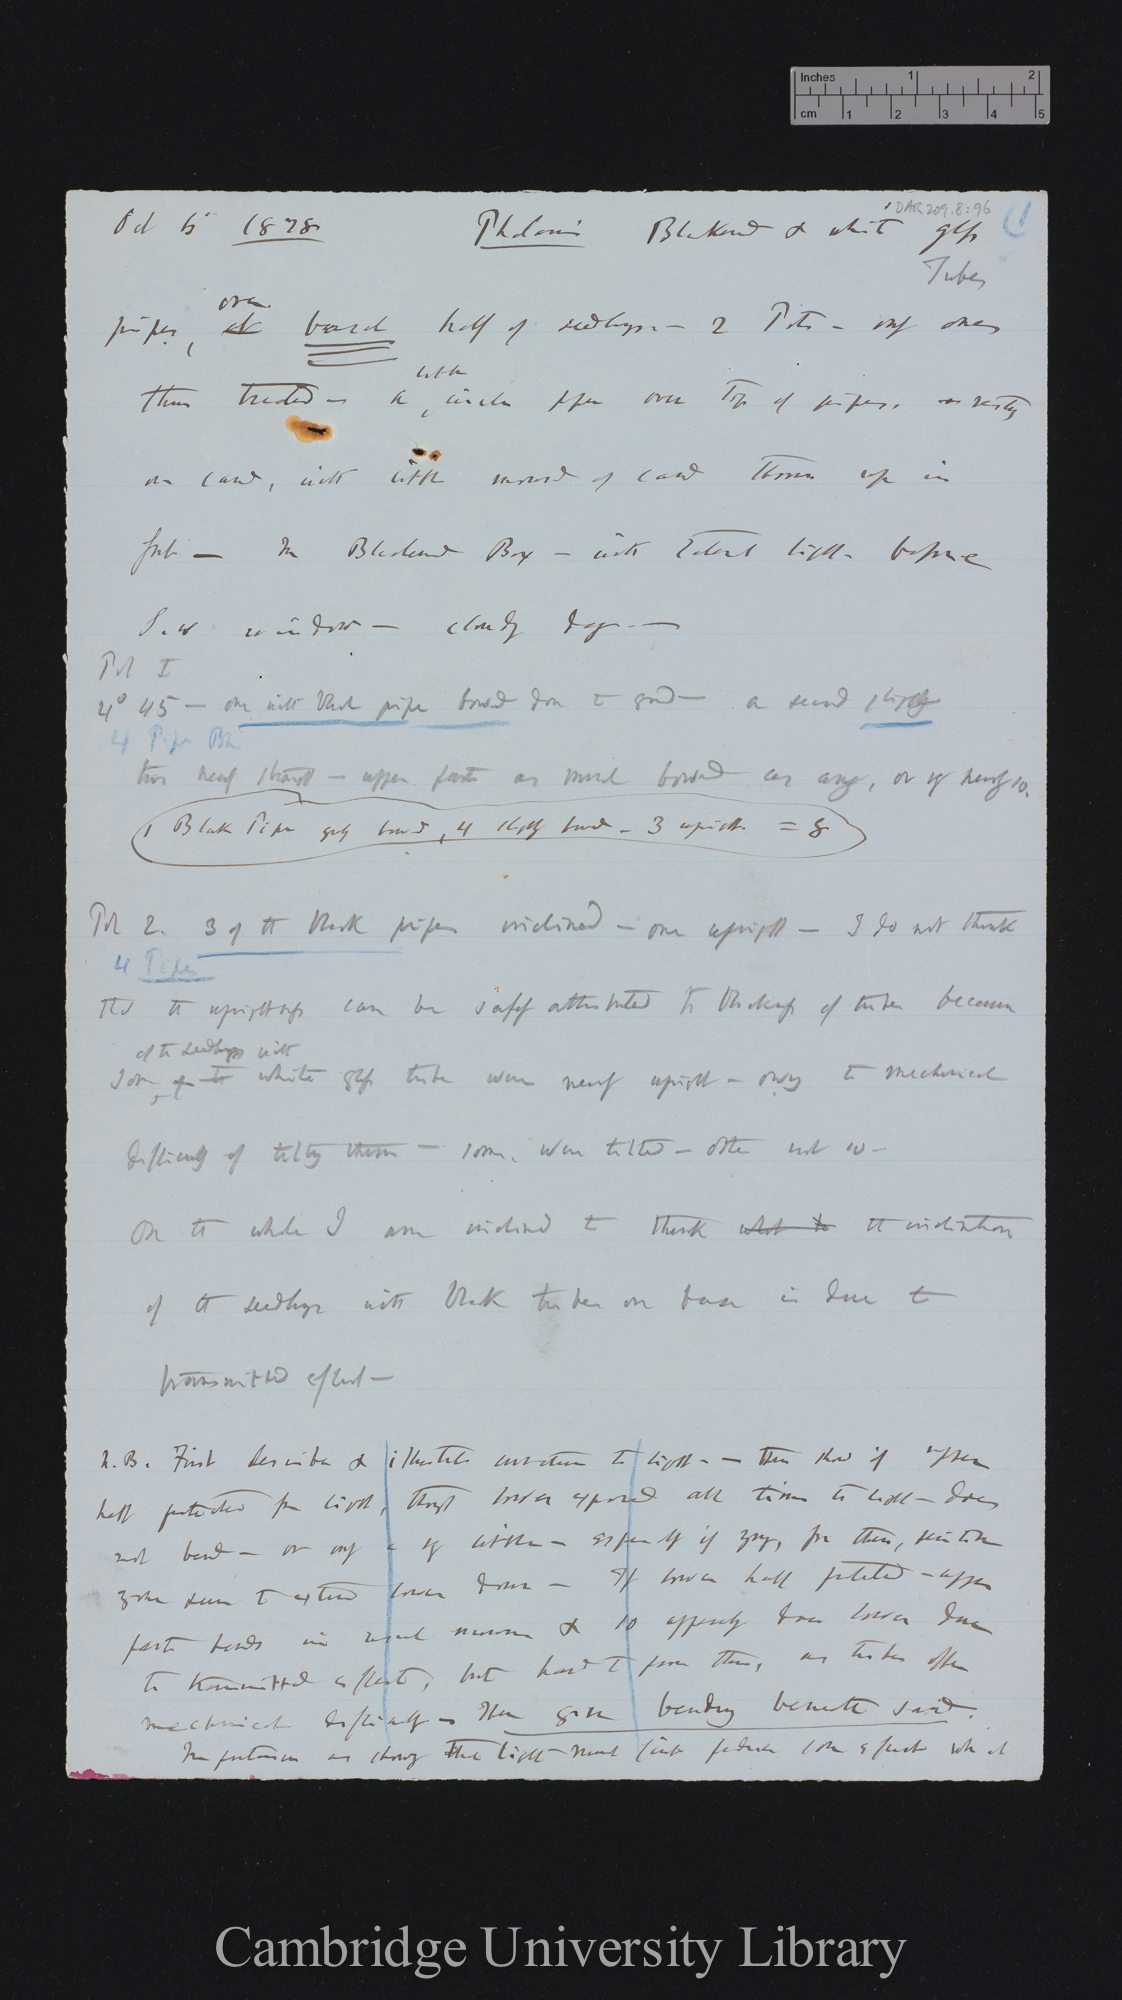 Inches 1 2
cm 1 2 3 4 5
DAR 209.8:96
Oct 15 1878 Phalaris Blackened & white glass (1
Tubes
over
pipes, basal half of seedlings — 2 Pots — only ones
little
thus treated — a circle paper over top of pipes. resting
on sand, with little mound of sand thrown up in
front — In Blackened Box — with lateral light before
S.W window — cloudy day. —
Pot I
4° 45 — one with black pipe bowed down to — a second slightly
4 Pipe Bla
two nearly straight — upper parts as much bowed as any, or nearly so.
1 Black Pipe bowed, 4 slightly bowed — 3 upright = 8
Pot 2. 3 of the black pipes inclined — one upright — I do not think
4 Pipes
that the uprightness can be safely attributed to blackness of tubes because
of the seedlings with
some white glass tube were nearly upright — owing to mechanical
difficulty of tilting them — some were tilted — other not so —
On the whole I am inclined to think the inclination
of the seedlings with black tubes on base is due to
transmitted effect —
N.B. First describe & illustrate curvature to light — then show if upper
half protected from light, though lower exposed all time to light — does
not bend — or only a little — especially if young, for then, sensitive
zone seems to extend lower down — If lower half protected — upper
part bends in usual manner & so apparently does lower due
to transmitted effects, but hard to prove this, as tubes offer
mechanical difficulty — Then give bending beneath sand.
light must some effect